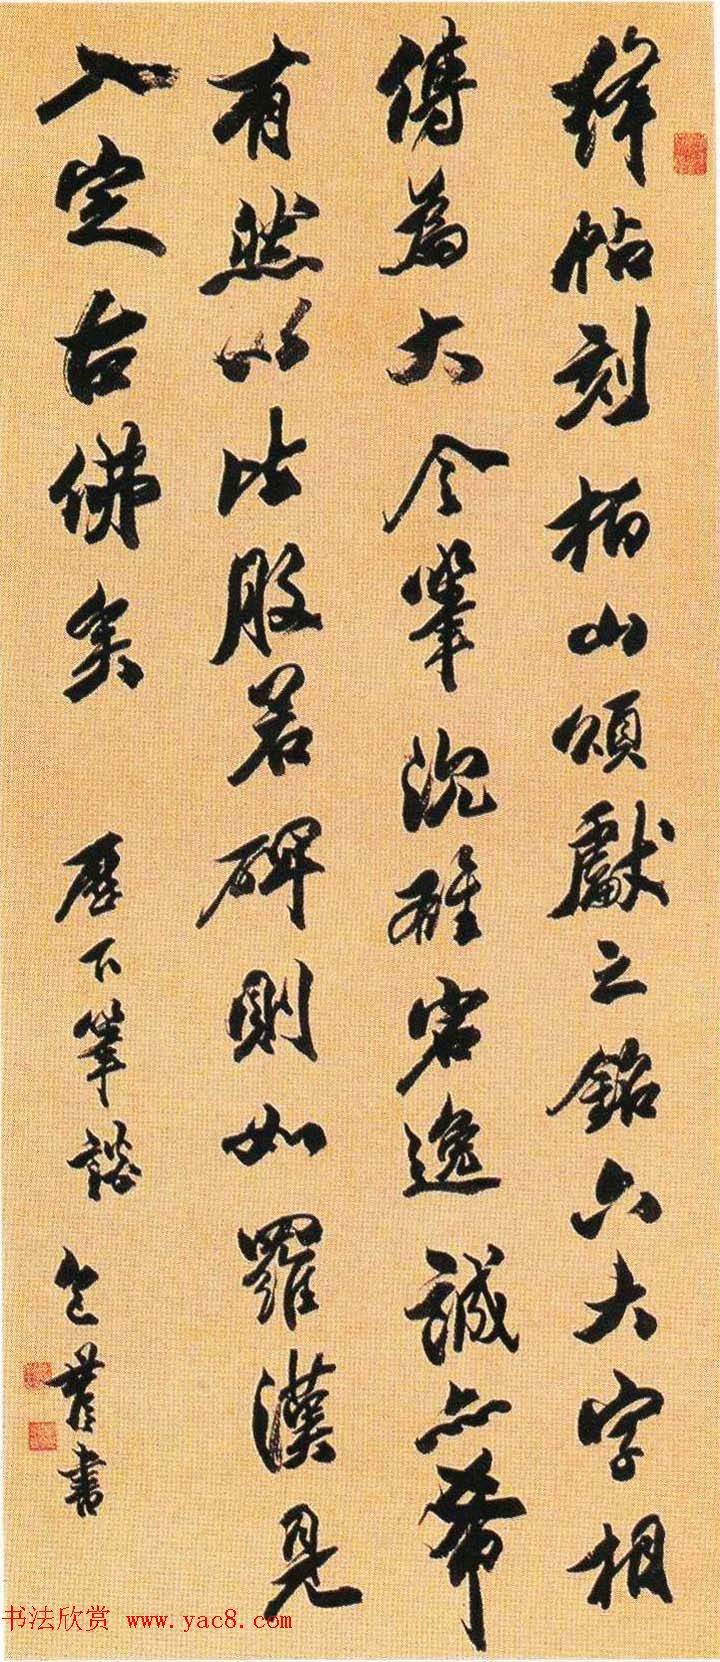 絳帖刻柏山頌獻之銘六大字相
傳為大令筆沈雄宕逸誠亦希
有然以比般若碑則如羅漢見
入定古佛矣
歷下筆談 包世臣書
书法欣赏 www.yac8.com